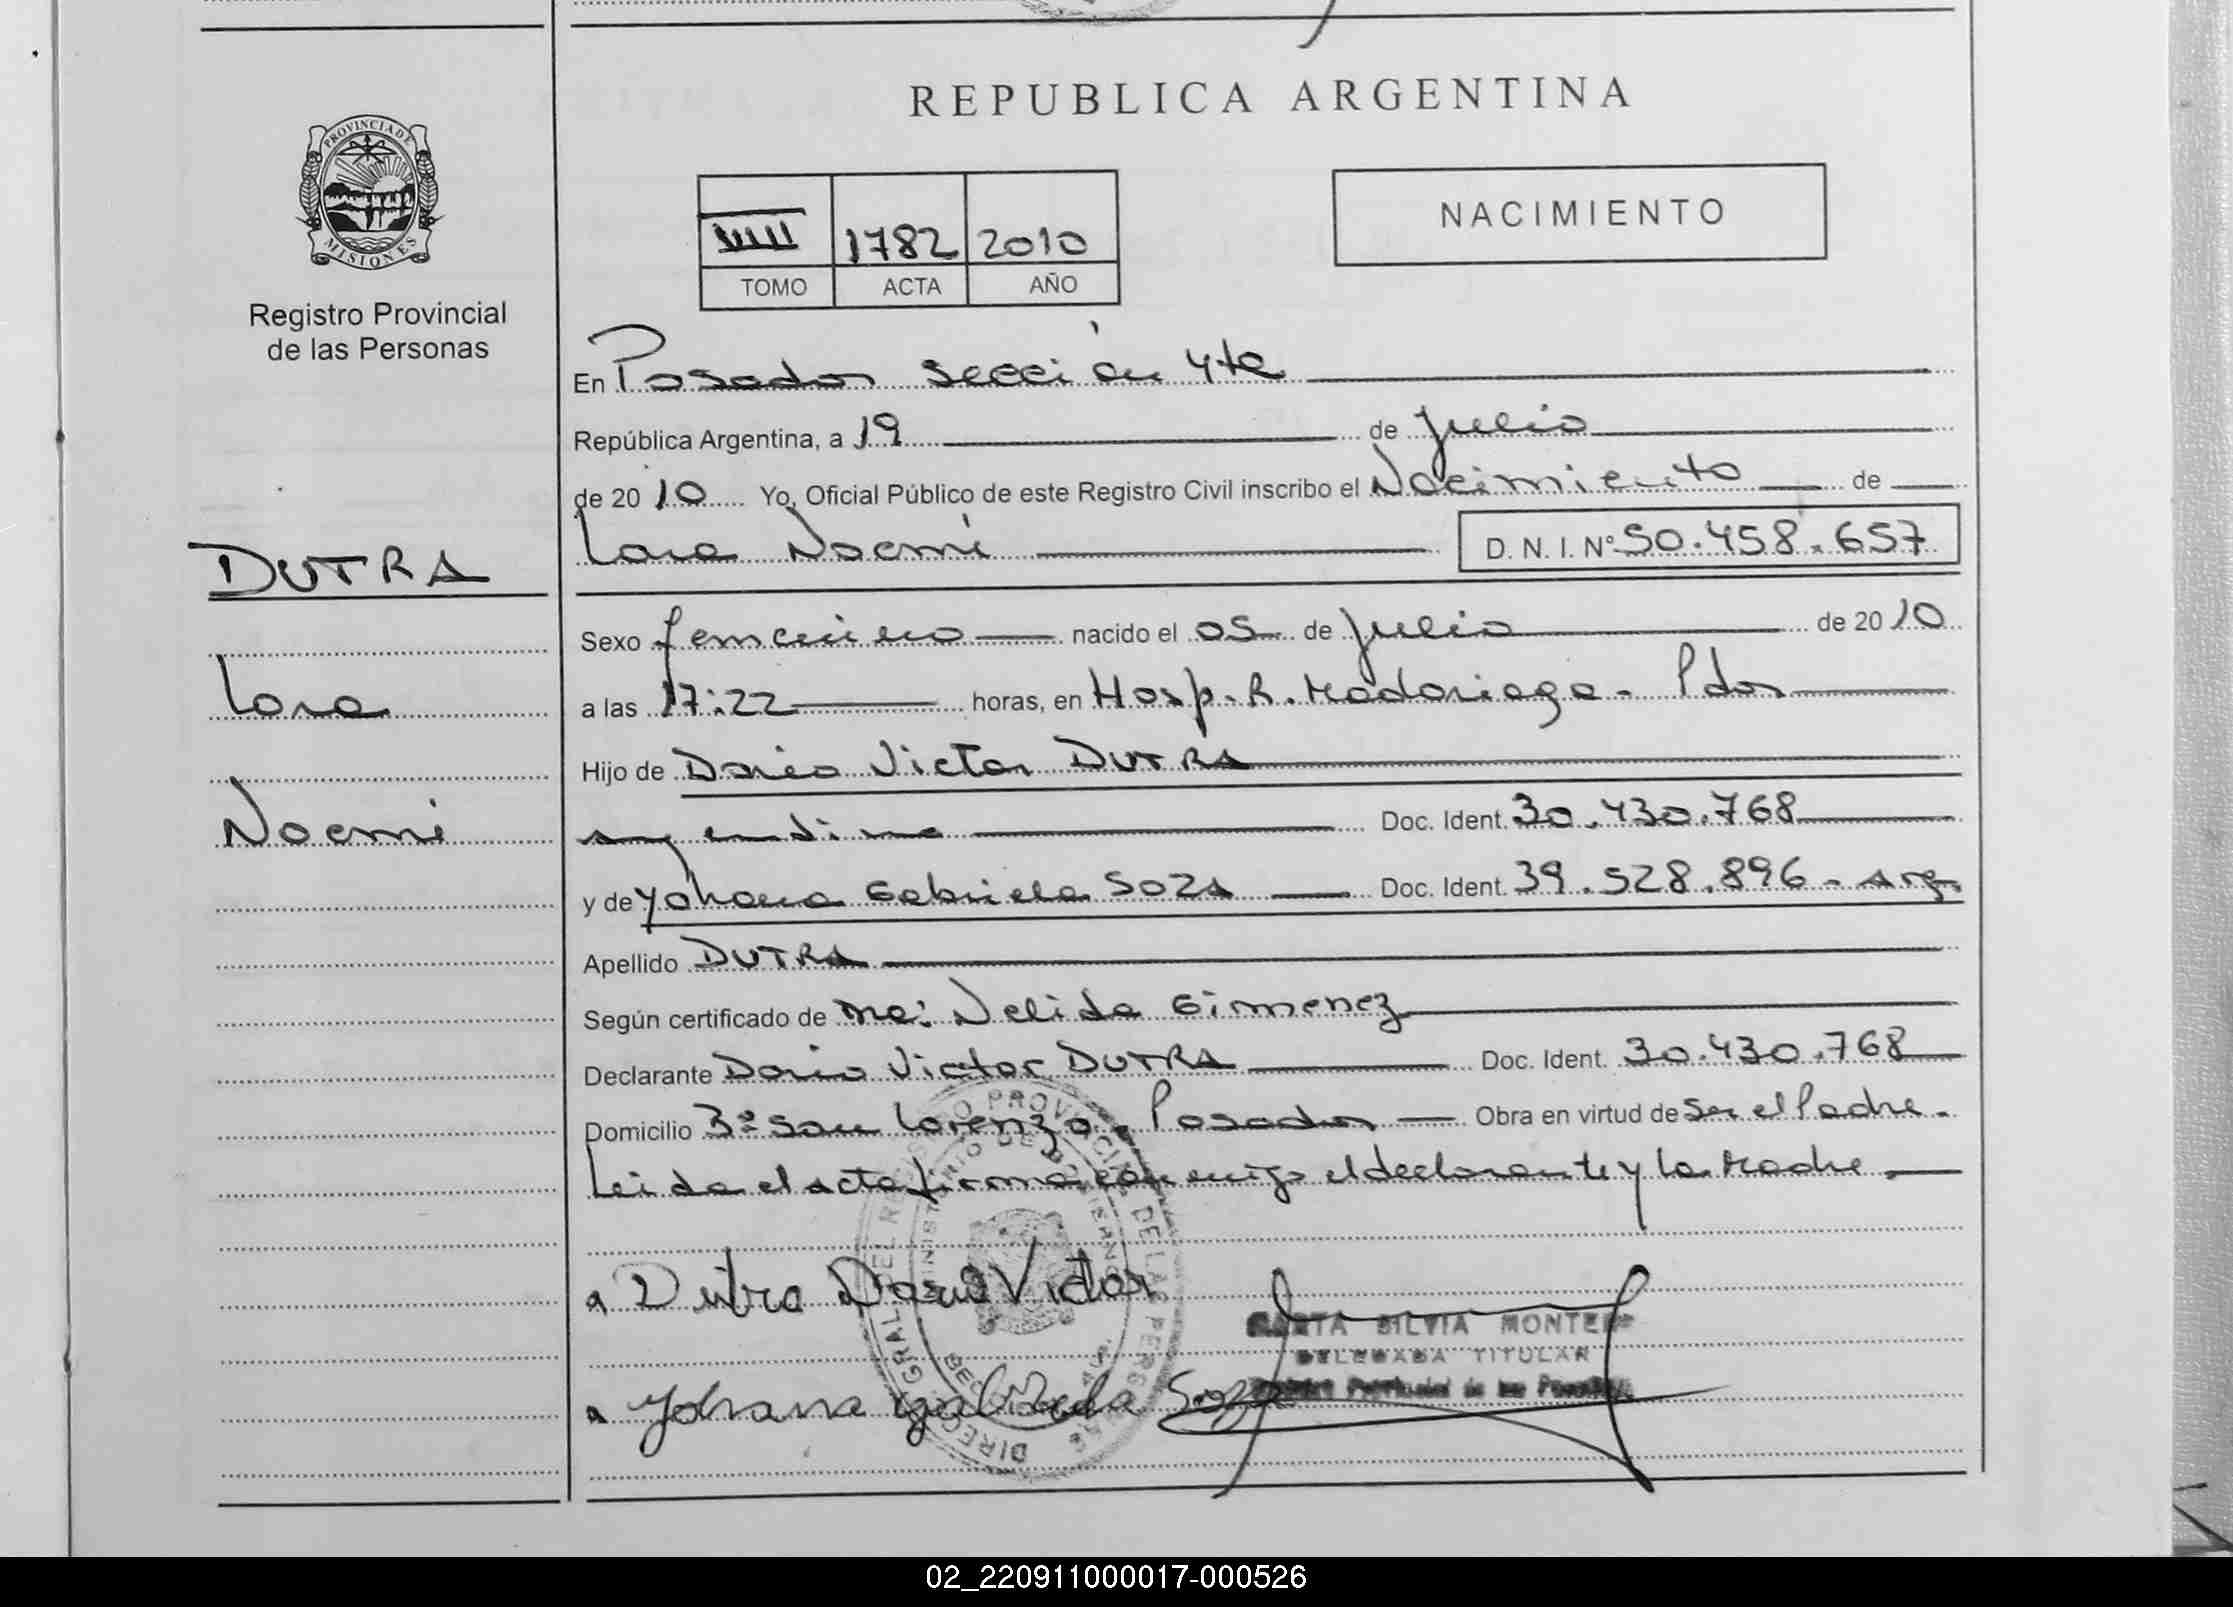 REPUBLICA ARGENTINA
PROVINCIA DE
MISIONES
Registro Provincial
de las Personas
1782 2010
TOMO ACTA AÑO
NACIMIENTO
En Posadas sección 4ta
República Argentina, a 19 de julio
de 2010 Yo, Oficial Público de este Registro Civil inscribo el Nacimiento de
Lara Noemi D. N. I. Nº 50.458.657
DUTRA
Lara
Noemi
Sexo femenino nacido el 05 de julio de 2010
a las 17:22 horas, en Hosp. R. Madariaga - Pdas
Hijo de Dario Victor DUTRA
argentino Doc. Ident. 30.430.768
y de Yohana Gabriela SOZA Doc. Ident. 39.528.896 - arg.
Apellido DUTRA
Según certificado de Ma: Nelida Gimenez
Declarante Dario Victor DUTRA Doc. Ident. 30.430.768
Domicilio Bº San Lorenzo. Posadas Obra en virtud de ser el Padre.
Leida el acta firma conmigo el declarante y la Madre.
a Dutra Dario Victor
MARTA SILVIA
DELEGADA TITULAR
a Yohana Gabriela Soza
02_220911000017-000526